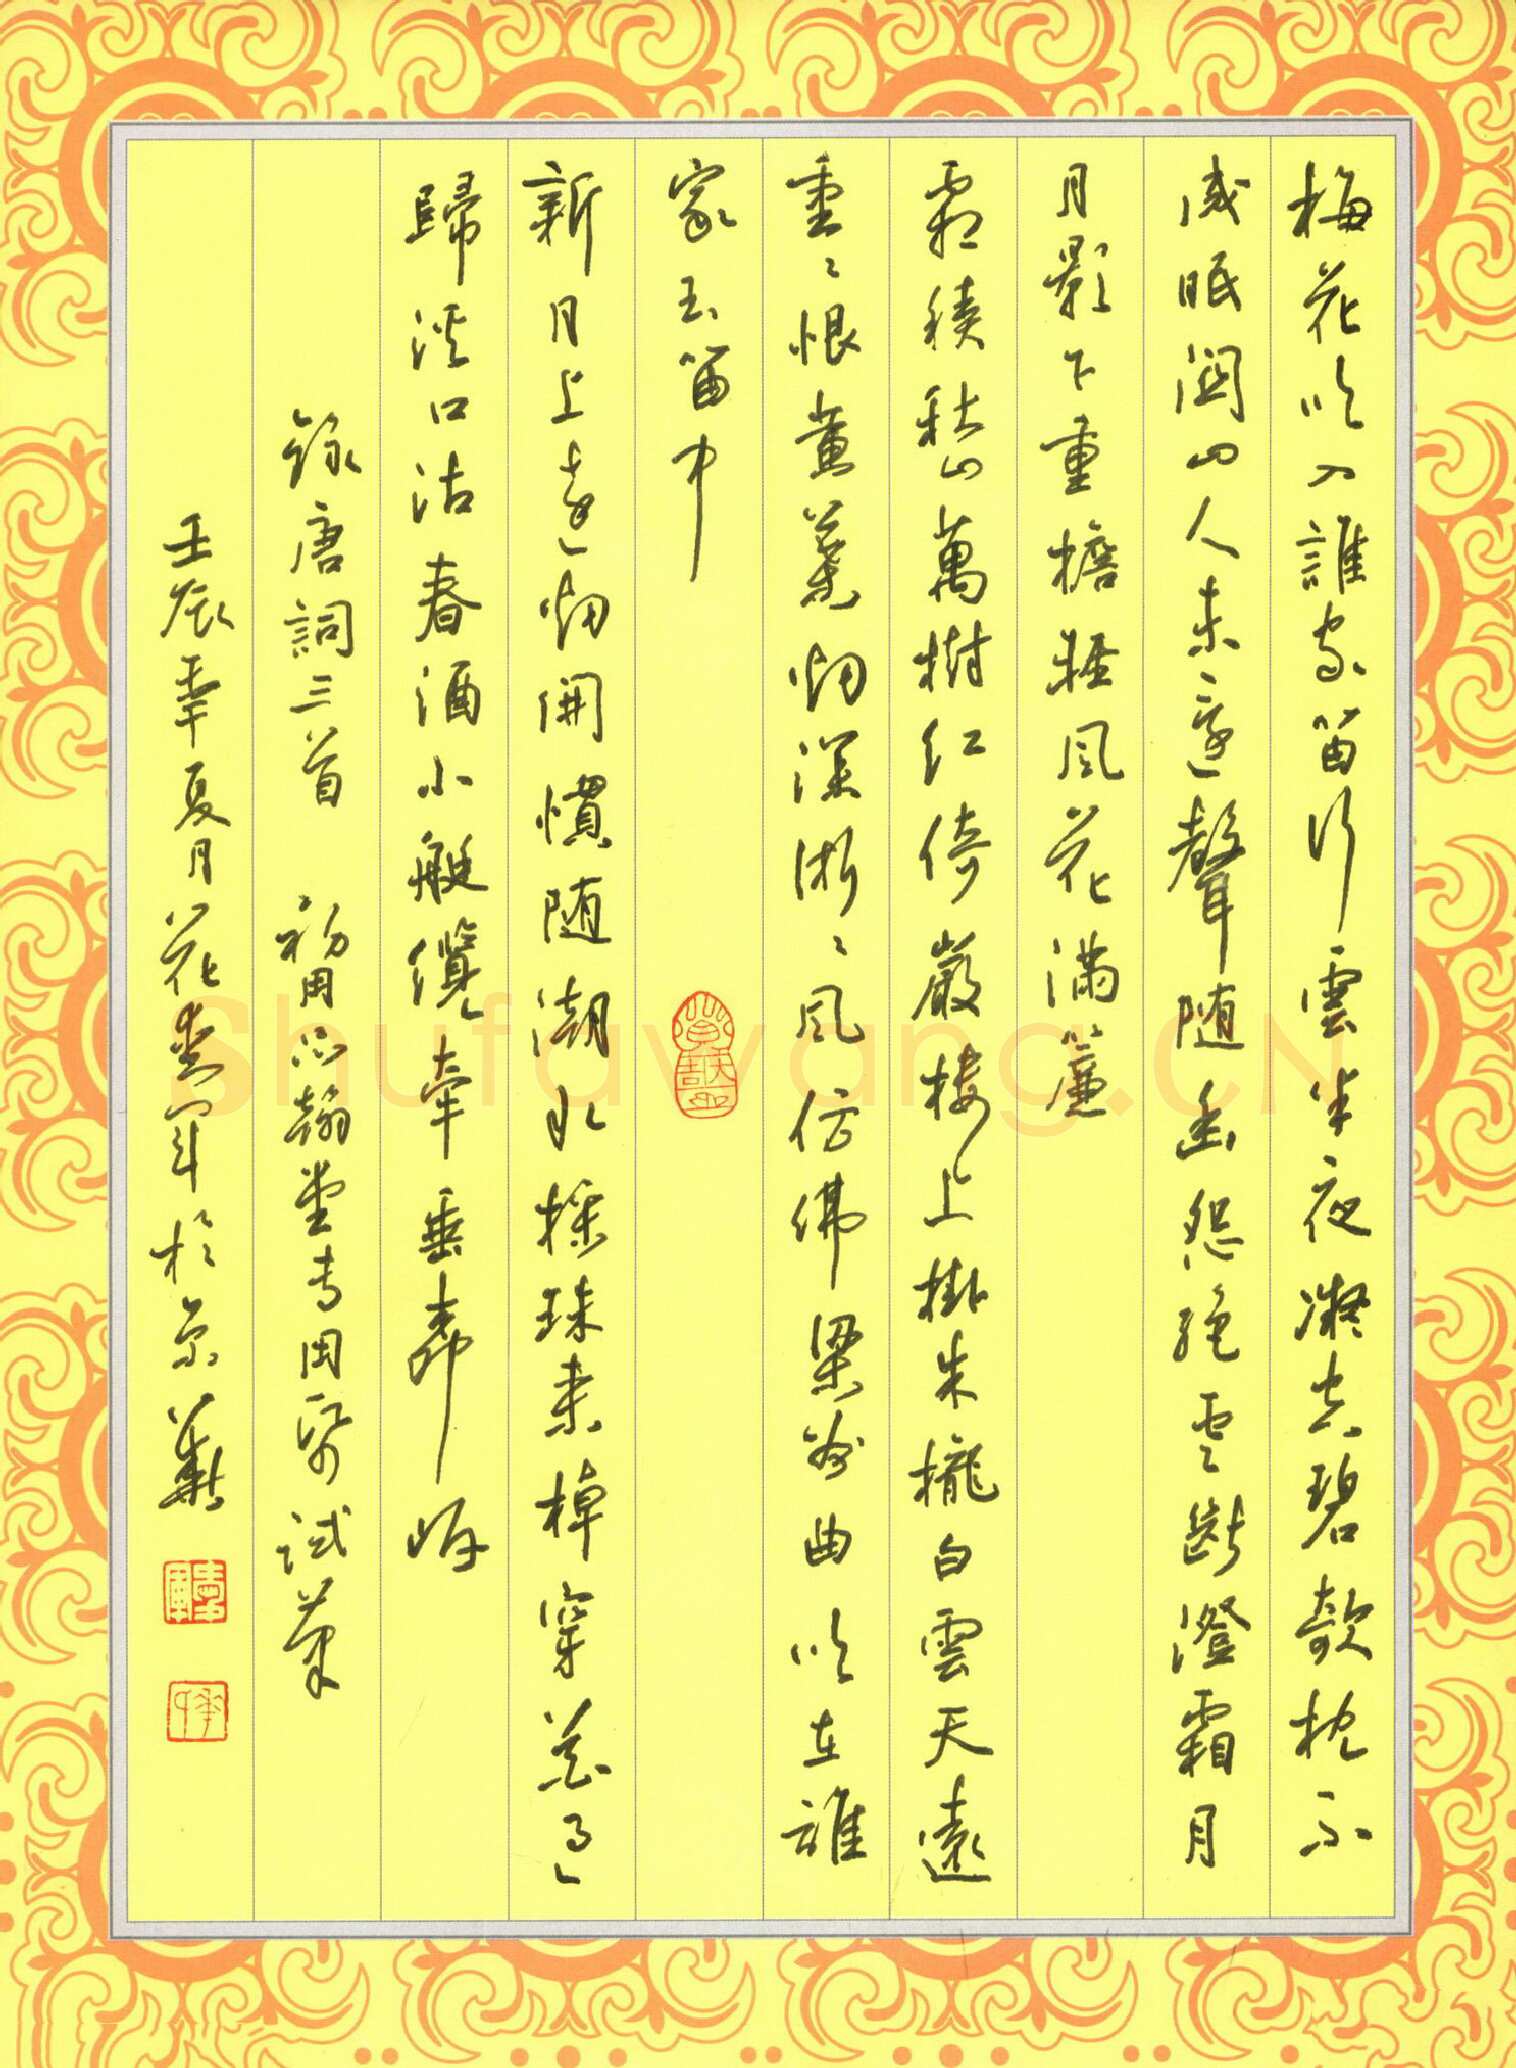 梅花吹入誰家笛行雲半夜凝空碧欹枕不
成眠關山人未還聲隨幽怨絕雲斷澄霜月
月影下重檐輕風花滿簾
霜積秋山萬樹紅倚巖樓上掛朱櫳白雲天遠
重重恨黃葉烟深淅淅風仿佛梁州曲吹在誰
家玉笛中
新月上遠烟開慣隨潮水採珠來棹穿花過
歸溪口沽春酒小艇纜牽垂岸
錄唐詞三首 初用心翰堂專用紙試筆
壬辰季夏月花黃軍於京華
Shufawang.CN